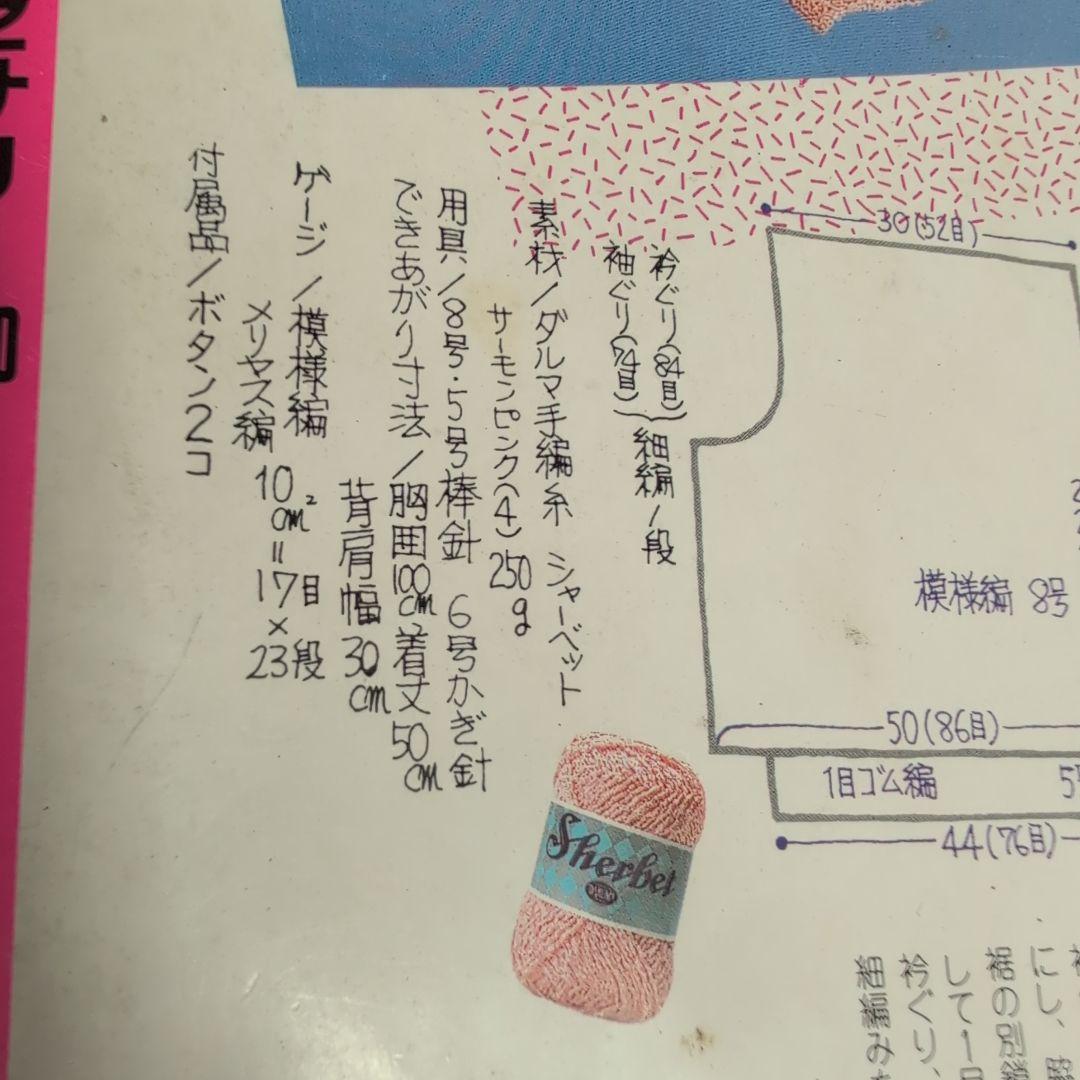 30(52目)
衿ぐり(84目)
袖ぐり(74目)
細編1段
素材/ダルマ手編糸 シャーベット
サーモンピンク(4)250g
用具/8号・5号棒針 6号かぎ針
できあがり寸法/胸囲100cm 着丈50cm
背肩幅30cm
ゲージ/模様編
メリヤス編
10cm²=17目×23段
付属品/ボタン2コ
模様編 8号
50(86目)
1目ゴム編
44(76目)
Sherbet
にし、
裾の別鎖
して1目
衿ぐり、
細編み